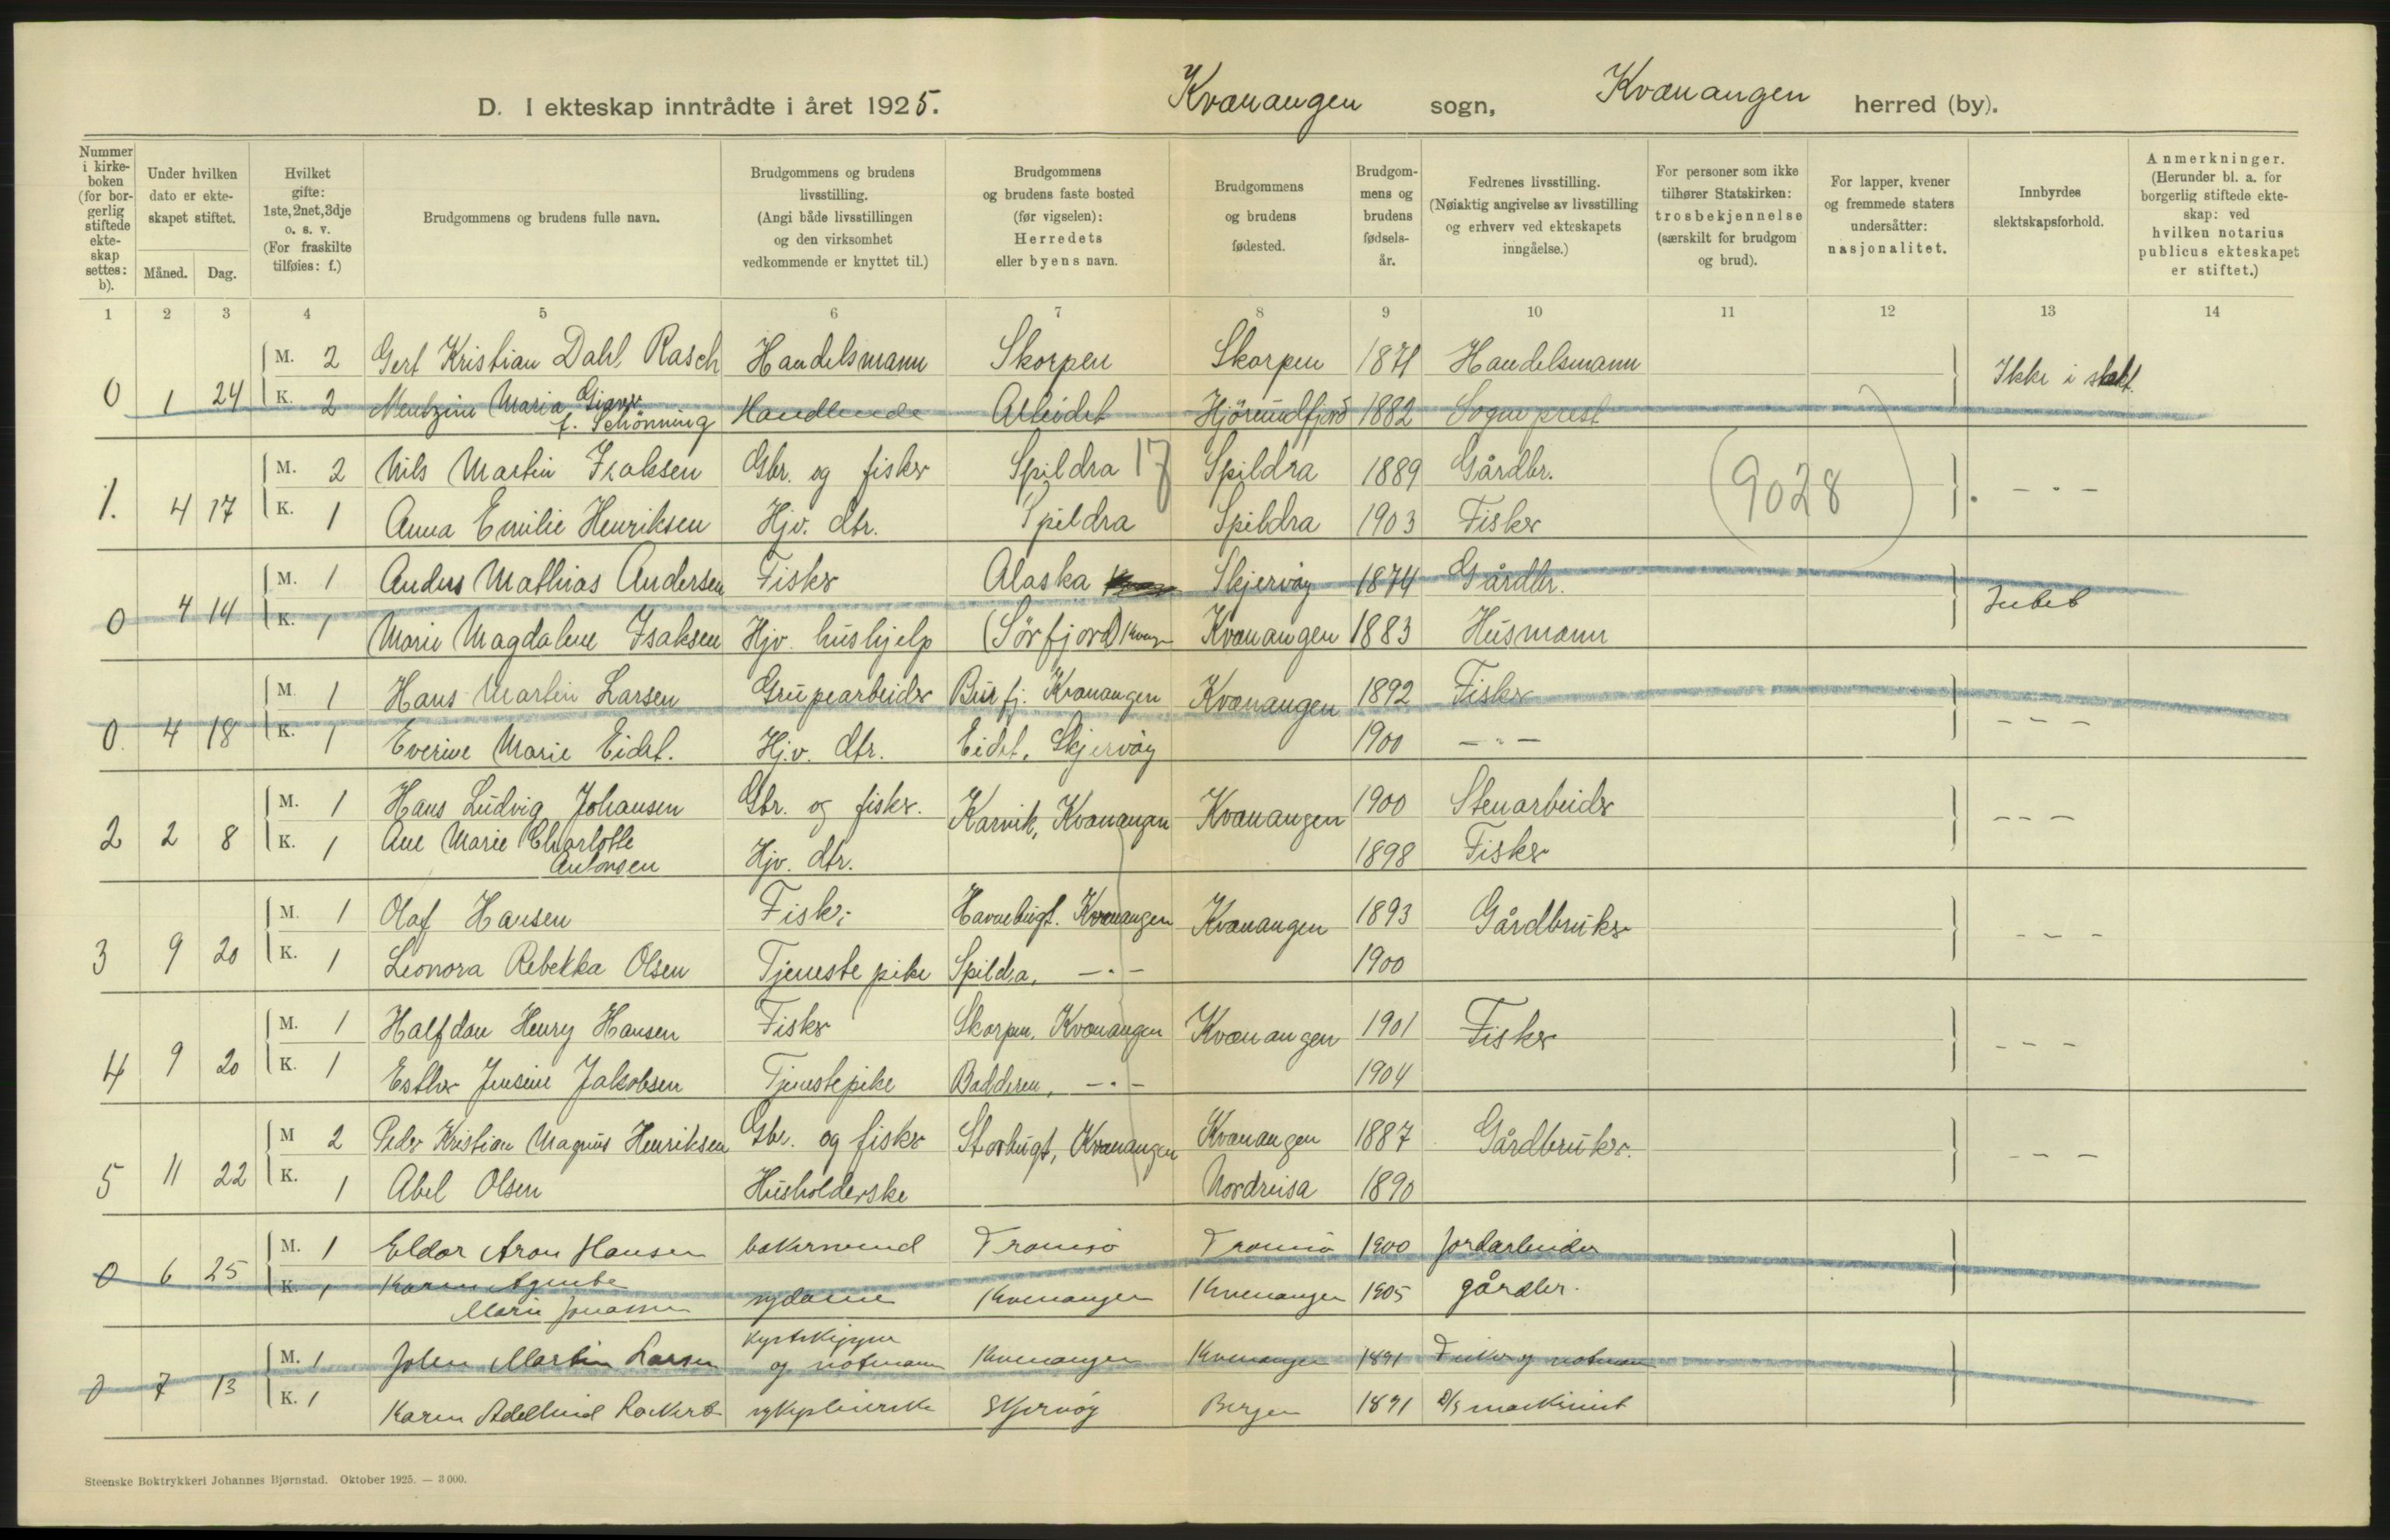 D. I ekteskap inntrådte i året 1925. Kvænangen sogn, Kvænangen herred (by).
Nummer i kirkeboken (for borgerlig stiftede ekteskap settes: b).
Under hvilken dato er ekteskapet stiftet.
Måned. Dag.
Hvilket gifte: 1ste, 2net, 3dje o. s. v. (For fraskilte tilføies: f.)
Brudgommens og brudens fulle navn.
Brudgommens og brudens livsstilling. (Angi både livsstillingen og den virksomhet vedkommende er knyttet til.)
Brudgommens og brudens faste bosted (før vigselen): Herredets eller byens navn.
Brudgommens og brudens fødested.
Brudgommens og brudens fødselsår.
Fedrenes livsstilling. (Nøiaktig angivelse av livsstilling og erhverv ved ekteskapets inngåelse.)
For personer som ikke tilhører Statskirken: trosbekjennelse (særskilt for brudgom og brud).
For lapper, kvener og fremmede staters undersåtter: nasjonalitet.
Innbyrdes slektskapsforhold.
Anmerkninger. (Herunder bl. a. for borgerlig stiftede ekteskap: ved hvilken notarius publicus ekteskapet er stiftet.)
1 2 3 4 5 6 7 8 9 10 11 12 13 14
M. 2 Gert Kristian Dahl Rasch Handelsmann Skorpen Skorpen 1871 Handelsmann Ikke i slekt.
0 1 24 K. 2 Mentzine Maria Signe f. Schönning Handlende Alteidet Hjörundfjord 1882 Sogneprest
M. 2 Nils Martin Isaksen Gbr. og fisker Spildra 17 Spildra 1889 Gårdbr. (9028) - " -
1. 4 17 K. 1 Anna Emilie Henriksen Hjv. dtr. Spildra Spildra 1903 Fisker
M. 1 Anders Mathias Andersen Fisker Alaska Skjervöy 1874 Gårdbr. Intet
0 4 14 K. 1 Marie Magdalene Isaksen Hjv. hushjelp (Sörfjord) Kvænangen 1883 Husmann
M. 1 Hans Martin Larsen Grupearbeider Burfj. Kvænangen Kvænangen 1892 Fisker - - -
0. 4 18 K. 1 Everine Marie Eidet. Hjv. dtr. Eidet, Skjervöy 1900 - " -
M. 1 Hans Ludvig Johansen Gbr. og fisker. Karvik, Kvænangen Kvænangen 1900 Stenarbeider - - -
2 2 8 K. 1 Ane Marie Charlotte Antonsen Hjv. dtr. 1898 Fisker
M. 1 Olaf Hansen Fisker Havnebugt. Kvænangen Kvænangen 1893 Gårdbruker - - -
3 9 20 K. 1 Leonora Rebekka Olsen Tjenestepike Spildra, - " - 1900
M. 1 Halfdan Henry Hansen Fisker Skorpen, Kvænangen Kvænangen 1901 Fisker - - -
4 9 20 K. 1 Esther Jensine Jakobsen Tjenestepike Badderen, - " - 1904
M 2 Peder Kristian Magnus Henriksen Gbr. og fisker Storbugt, Kvænangen Kvænangen 1887 Gårdbruker. - - -
5 11 22 K. 1 Abel Olsen Husholderske Nordreisa 1890
M. 1 Eldor Aron Hansen bakersvend Tromsö Tromsö 1900 Jordarbeider
0 6 25 K. 1 Karen Agnethe Marie Jonassen sydame Kvenangen Kvenangen 1905 gårdbr.
M. 1 John Martin Larsen kystskipper og notmann Kvenangen Kvenangen 1891 Fisker og notmann
0 7 13 K. 1 Karen Adelheid sykepleierske Skjervöy Bergen 1891 D/S maskinist
Steenske Boktrykkeri Johannes Bjørnstad. Oktober 1925. — 3 000.